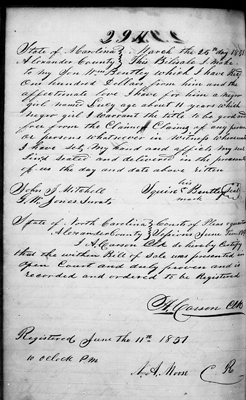 State of N Carolina } March the 25th day 1851
Alexander County } This Bill of Sale I Make
to my Son Wm Bentley which I have this
One hundred Dollars from him and the
affectionate love I have for him a negro
girl named Lucy age about 11 years which
negro girl I warrant the title to be good and
free from the Claim or Claims of any person
or persons whatsoever in witness whereof
I have set my hand and affixed my seal
Sined seated and delivered in the presence
of us the day and date above ritten
his
John J. Mitchell Squire Bentley
G. W. Jones Jurat mark
State of North Carolina } Courts of Pleas &
Alexander County } Sessions June Term
I A Carson Clk do hereby Certify
that the within Bill of Sale was presented in
open Court and duly proven and is
recorded and ordered to be Registered
Carson Clk
Registered June the 11th 1851
10 oclock P M
C R